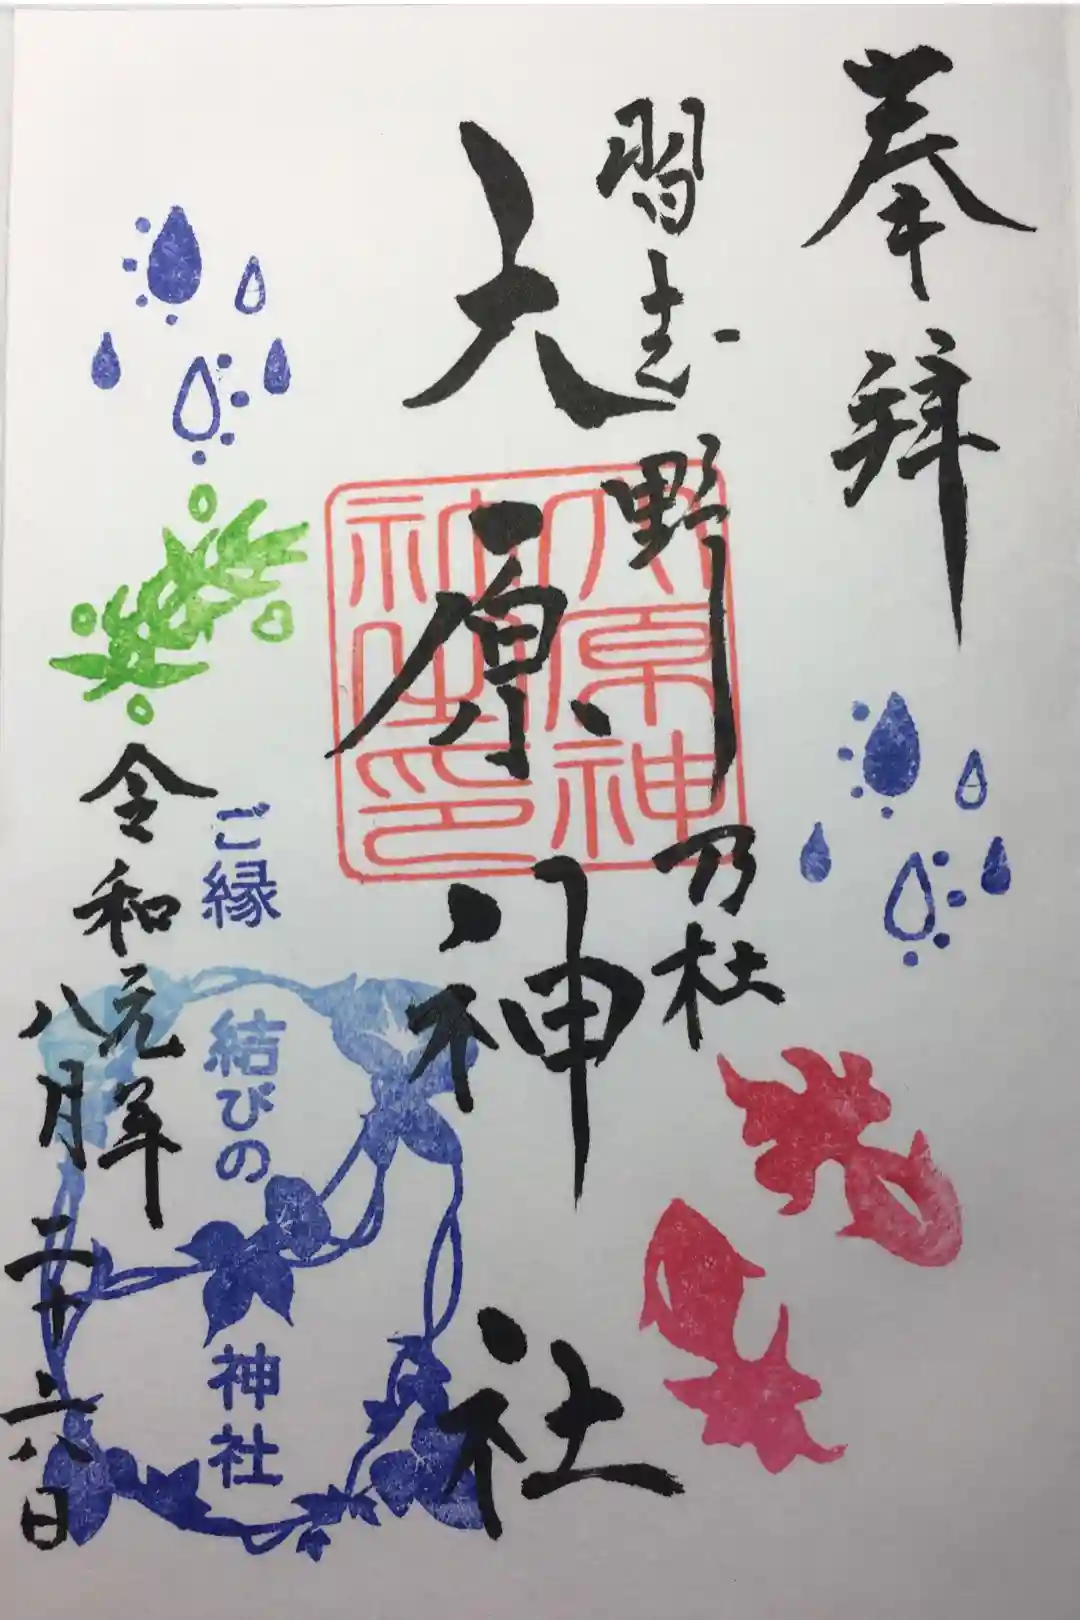 奉拝
習志野乃杜
大原神社
大原神
社之印
ご縁
結びの
神社
令和元年
八月二十六日